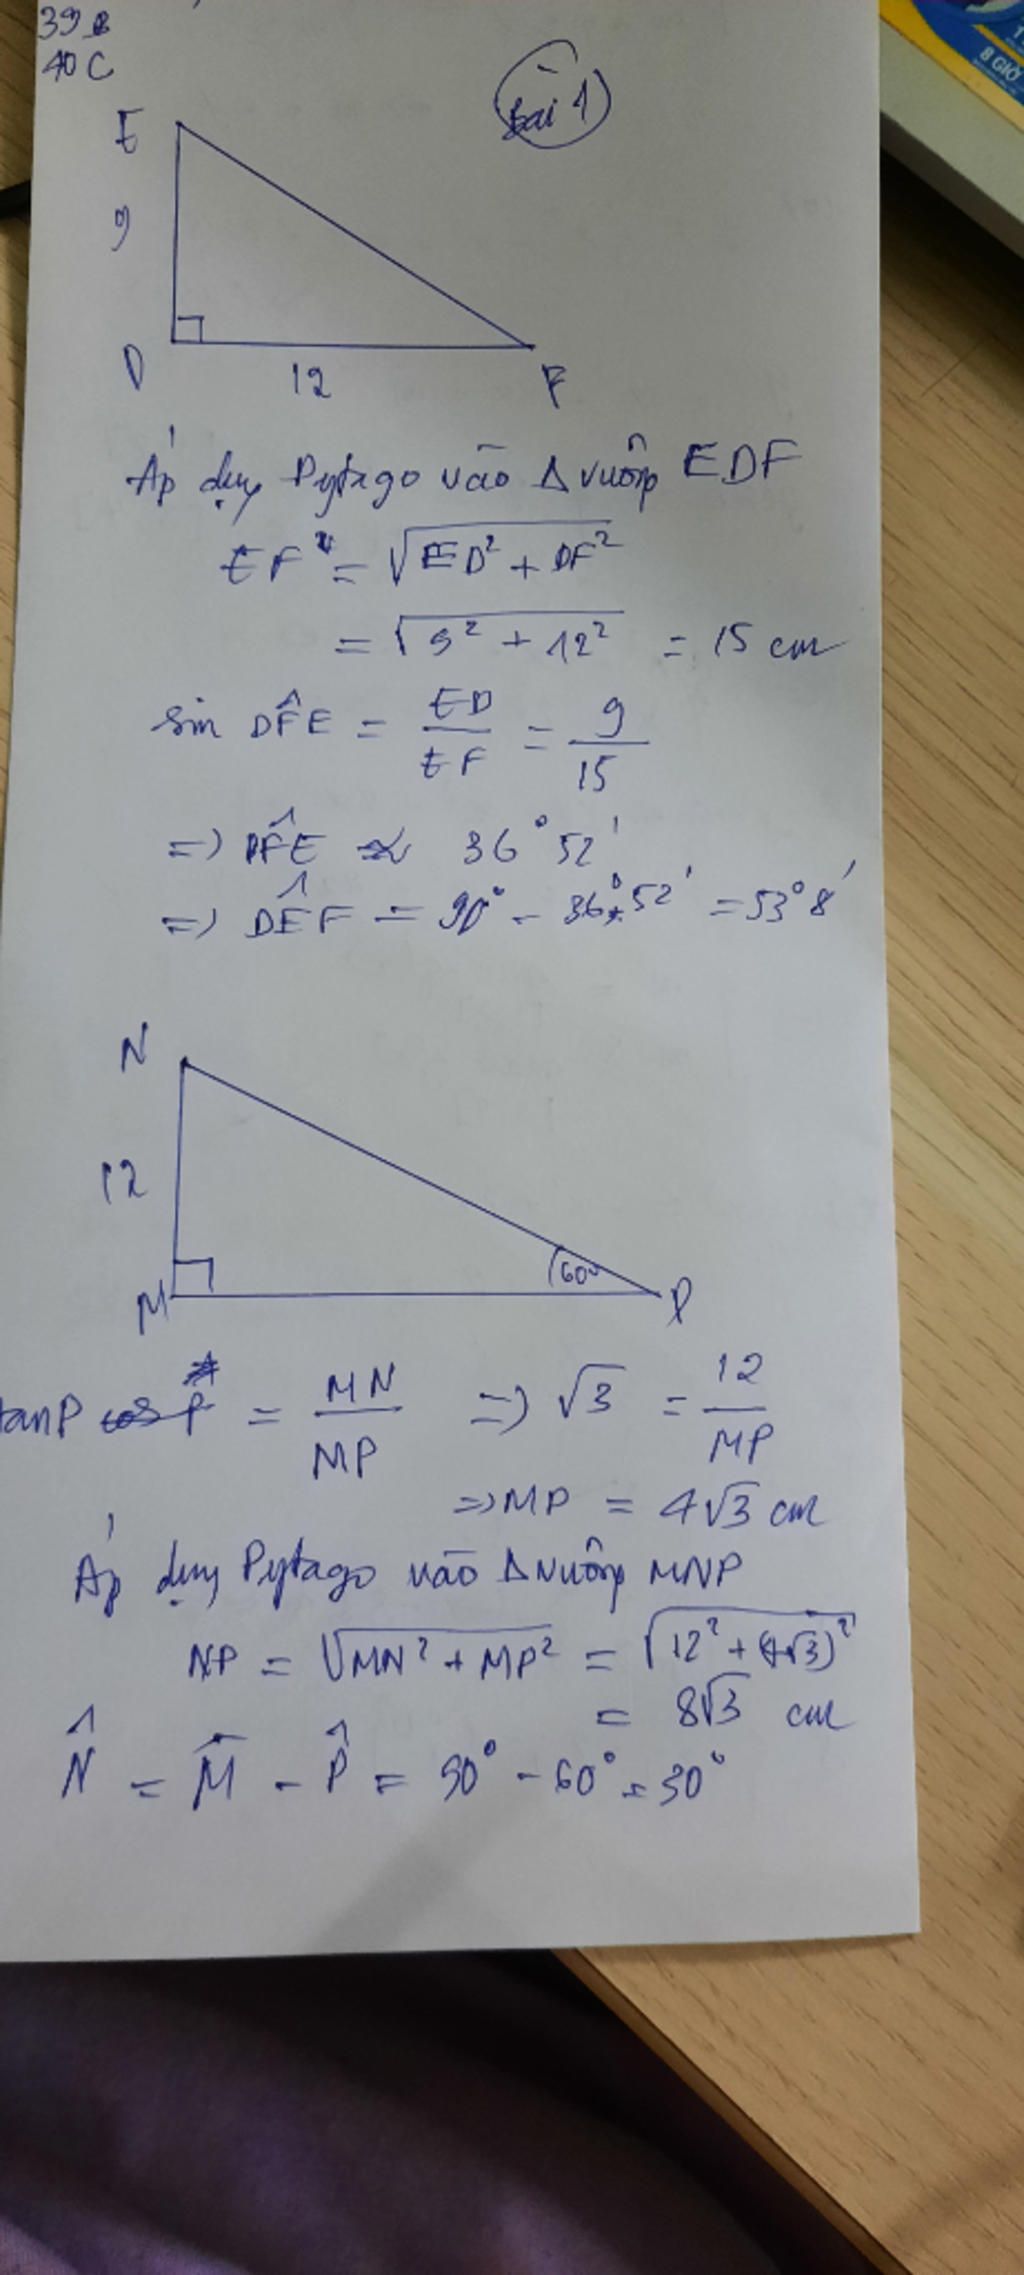 39 B
40 C
Bài 1
E
9
D
12
F
Áp dụng Pytago vào Δ vuông EDF
EF = √(ED² + DF²)
= √(9² + 12²) = 15 cm
sin DF̂E = ED/EF = 9/15
=> DF̂E ≈ 36°52'
=> DÊF = 90° - 36°52' = 53°8'
N
12
M
60°
P
tanP = MN/MP => √3 = 12/MP
=> MP = 4√3 cm
Áp dụng Pytago vào Δ vuông MNP
NP = √(MN² + MP²) = √(12² + (4√3)²)
= 8√3 cm
N̂ = M̂ - P̂ = 90° - 60° = 30°
8 GIỜ